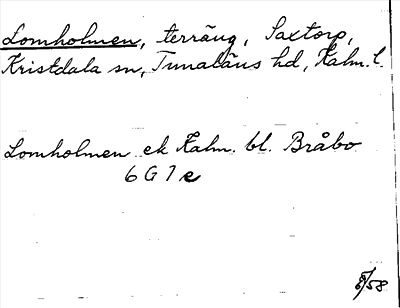 Lomholmen, terräng, Saxtorp,
Kristdala sn, Tunaläns hd, Kalm. l.
Lomholmen ek Kalm. bl. Bråbo
6 G 7 e
8/58